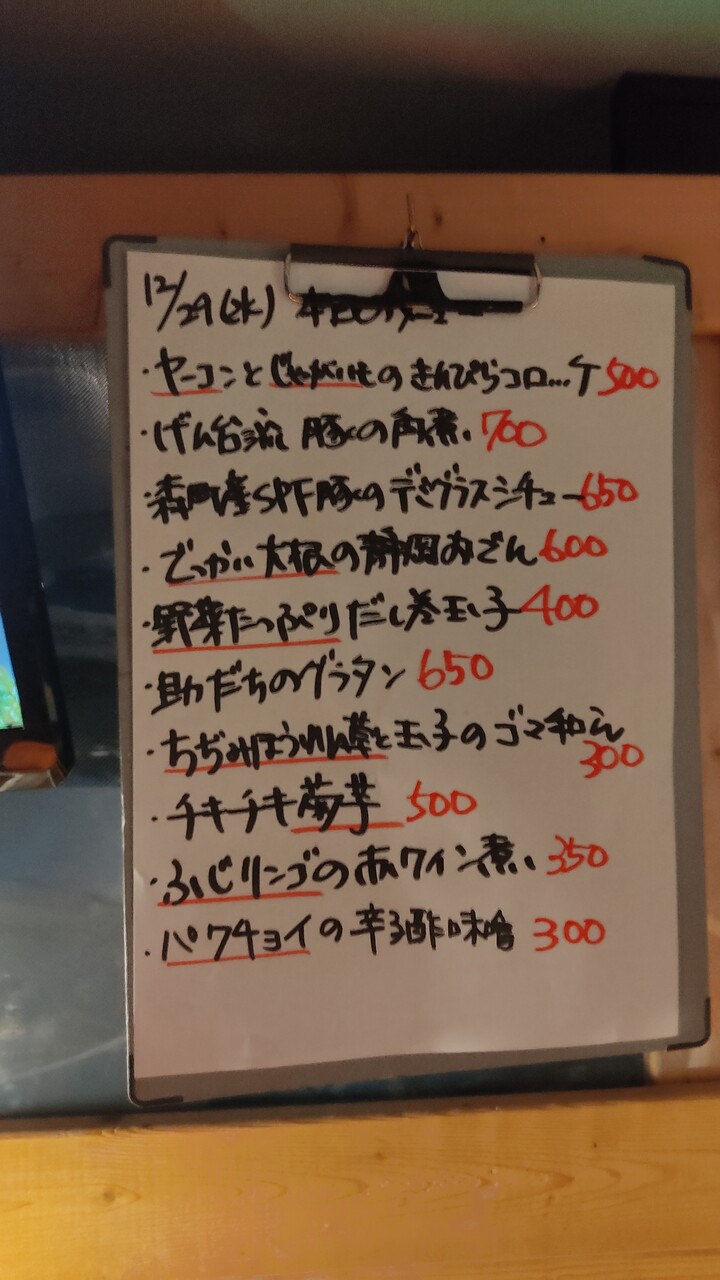 12/29(水) 本日のメニュー
・ヤーコンとじゃがいものきんぴらコロッケ500
・げん台流 豚の角煮 700
・森町産SPF豚のデミグラスシチュー650
・でっかい大根の静岡おでん600
・野菜たっぷりだし巻玉子400
・助だちのグラタン 650
・ちぢみほうれん草と玉子のゴマ和え
300
・チキチキ菊芋 500
・ふじリンゴの赤ワイン煮 350
・パクチョイの辛子酢味噌 300